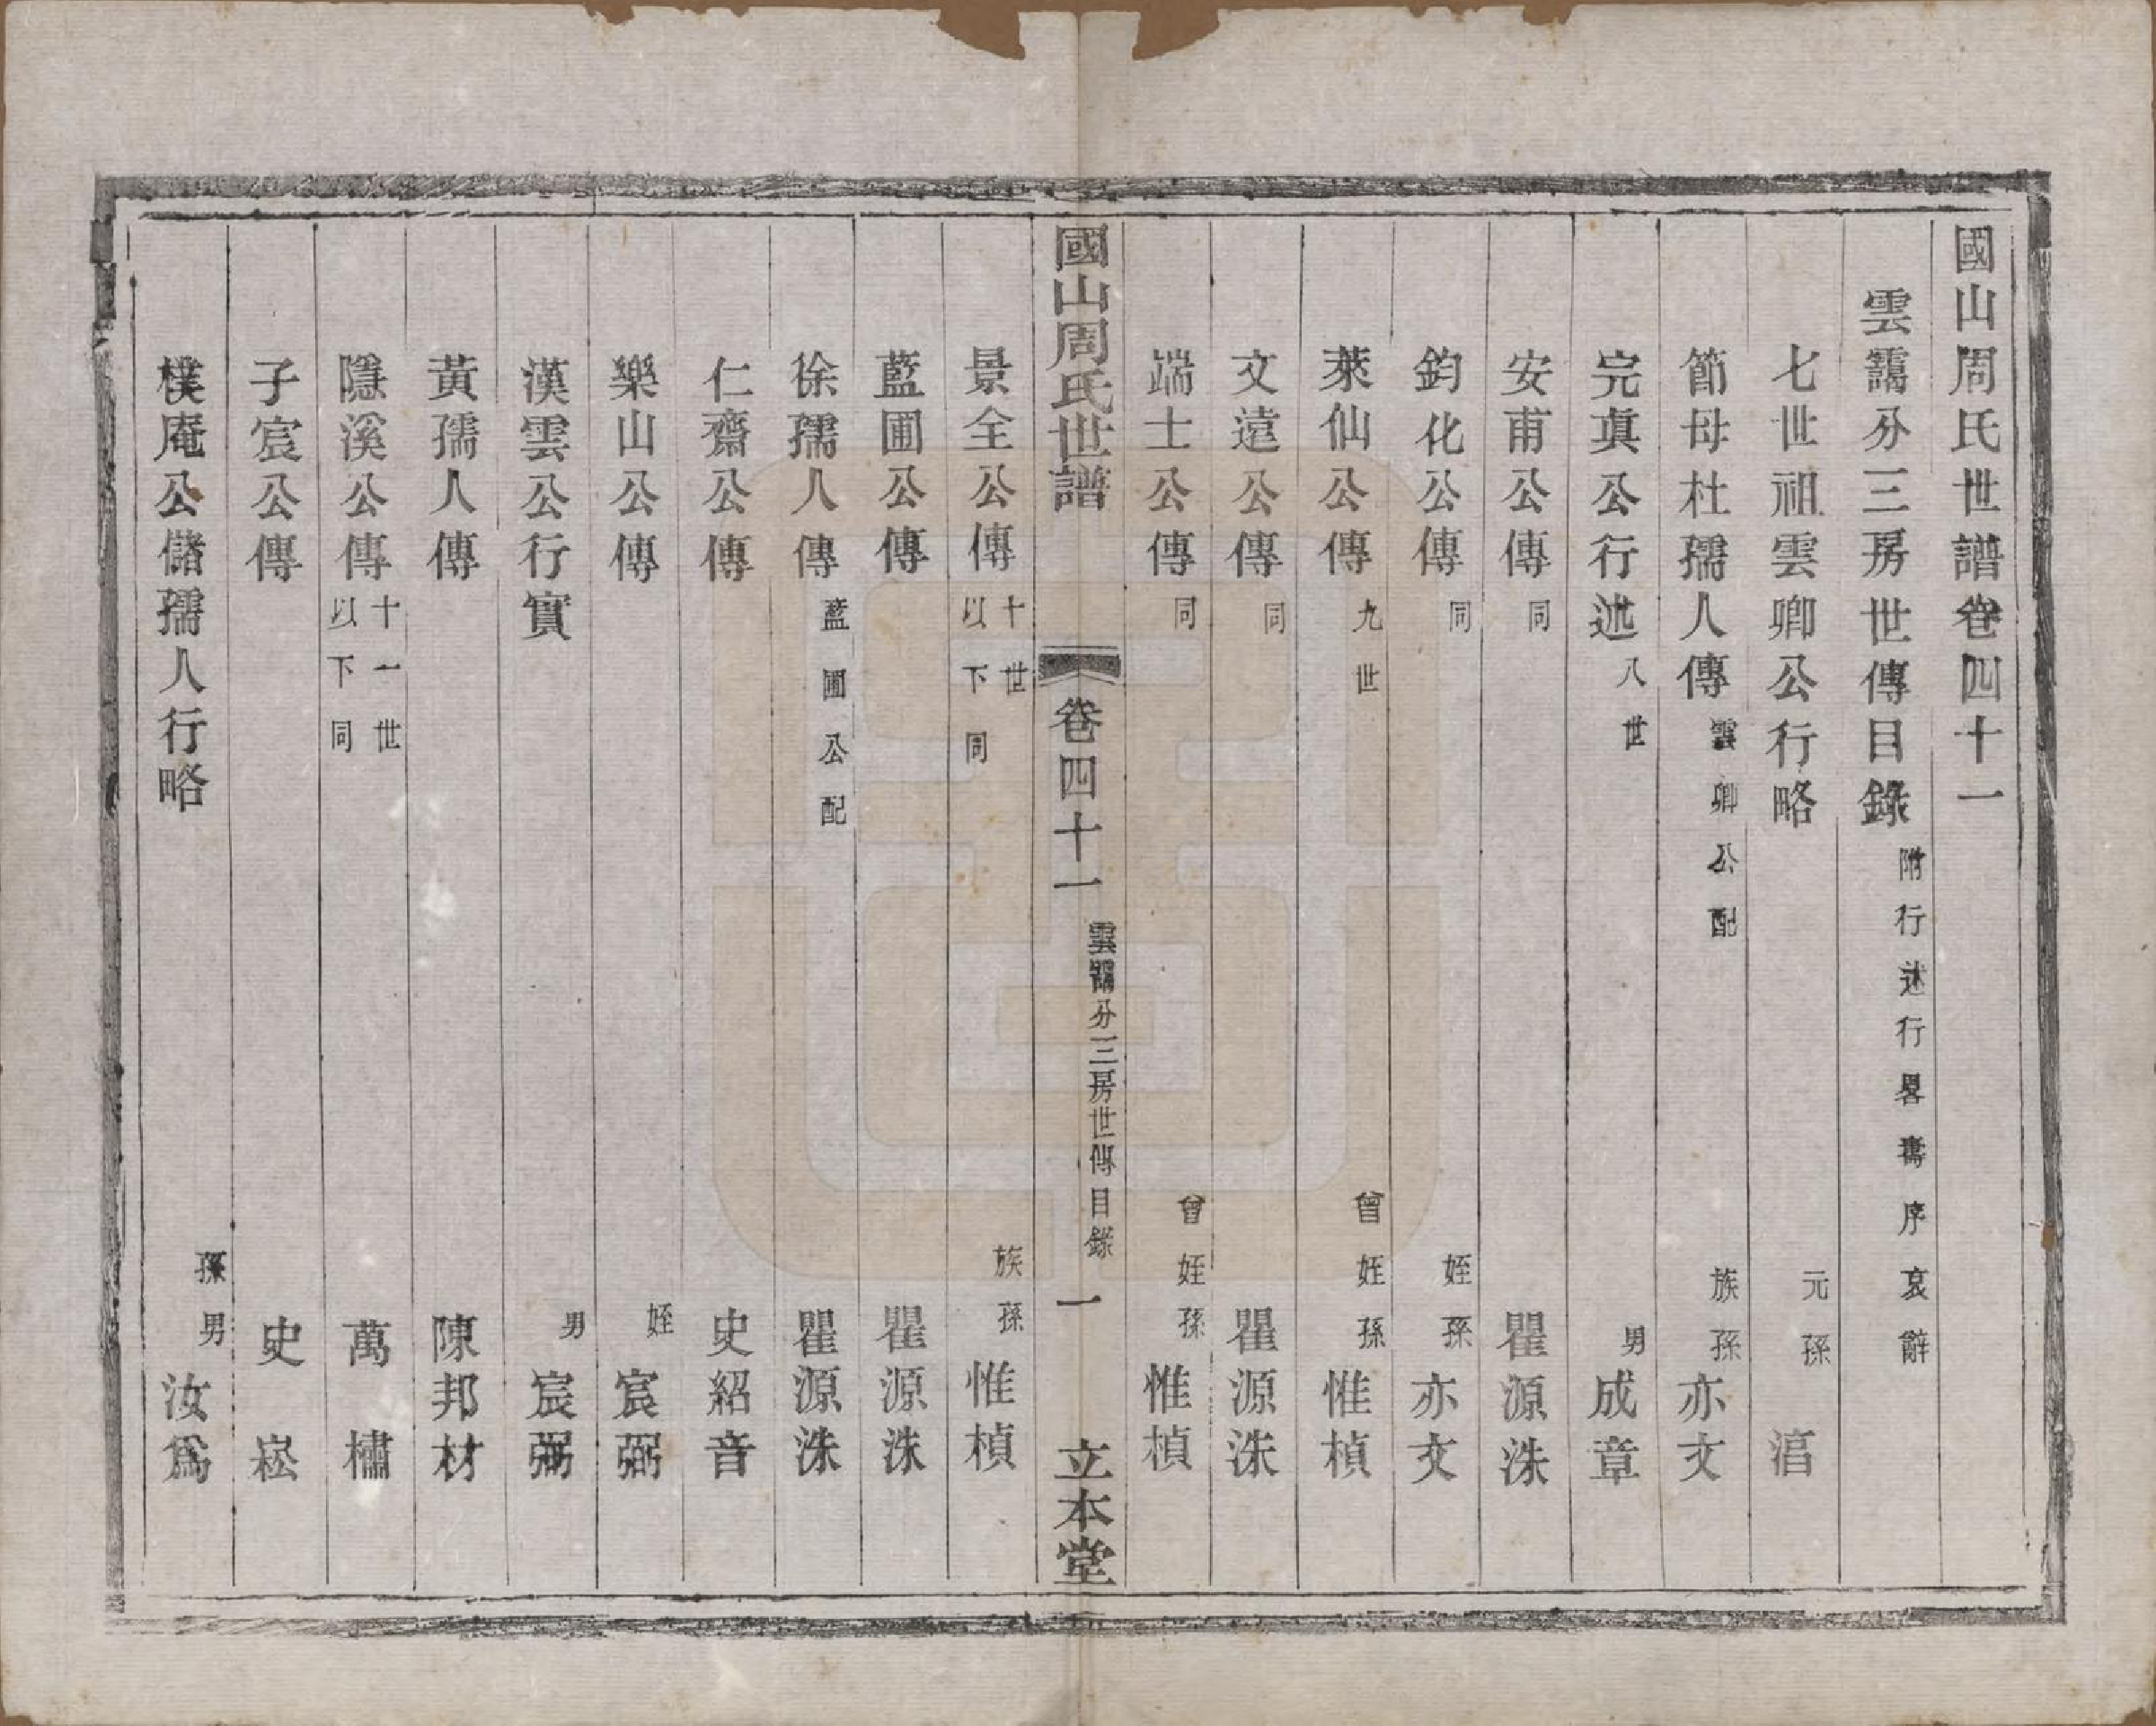 國山周氏世譜卷四十一
雲靄分三房世傳目錄 附行述行畧壽序哀辭
七世祖雲卿公行略 元孫 㴠
節母杜孺人傳 雲卿公配 族孫 亦文
完真公行述 八世 男 成章
安甫公傳 同 瞿源洙
鈞化公傳 同 姪孫 亦文
萊仙公傳 九世 曾姪孫 惟楨
文遠公傳 同 瞿源洙
端士公傳 同 曾姪孫 惟楨
國山周氏世譜 卷四十一 雲靄分三房世傳目錄 一 立本堂
景全公傳 十世以下同 族孫 惟楨
藍圃公傳 瞿源洙
徐孺人傳 藍圃公配 瞿源洙
仁齋公傳 史紹音
樂山公傳 姪 宸弼
漢雲公行實 男 宸弼
黃孺人傳 陳邦材
隱溪公傳 十一世以下同 萬櫹
子宸公傳 史崧
樸庵公儲孺人行略 孫男 汝爲